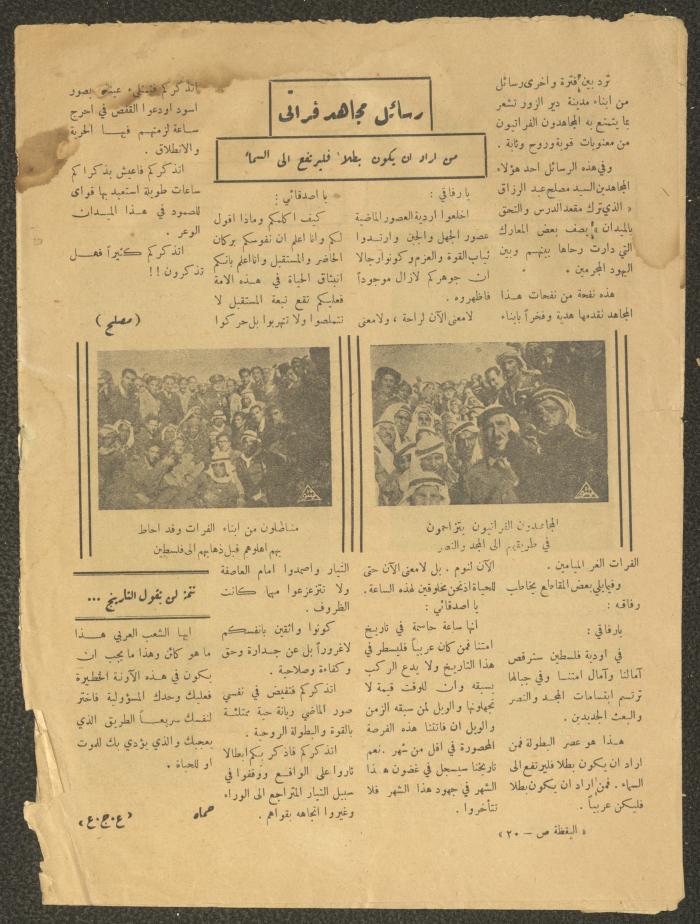 رسائل مجاهد فراتي
من اراد ان يكون بطلا فليرتفع الى السماء
ترد بين فترة واخرى رسائل
من ابناء مدينة دير الزور تشعر
بما يتمتع به المجاهدون الفراتيون
من معنويات قوية وروح وثابة .
وفي هذه الرسائل احد هؤلاء
المجاهدين السيد مصلح عبد الرزاق
« الذي ترك مقعد الدرس والتحق
بالميدان » يصف بعض المعارك
التي دارت رحاها بينهم وبين
اليهود المجرمين .
هذه نفحة من نفحات هذا
المجاهد نقدمها هدية وفخراً بابناء
الفرات الغر الميامين .
وفيما يلي بعض المقاطع يخاطب
رفاقه :
يا رفاقي :
في اودية فلسطين سنرقص
آمالنا وآمال امتنا وفي جبالها
ترتسم ابتسامات المجد والنصر
والبعث الجديدين .
هذا هو عصر البطولة فمن
اراد ان يكون بطلا فليرتفع الى
السماء . فمن اراد ان يكون بطلا
فليكن عربياً .
يا رفاقي :
اخلعوا اردية العصور الماضية
عصور الجهل والجبن وارتدوا
ثياب القوة والعزم وكونوا رجالا
ان جوهركم لازال موجوداً
فاظهروه .
لا معنى الآن لراحة ، ولا معنى
الآن لنوم . بل لا معنى الآن حتى
للحياة اذ نحن مخلوقين لهذه الساعة .
يا اصدقائي :
انها ساعة حاسمة في تاريخ
امتنا فمن كان عربياً فليسطر في
هذا التاريخ ولا يدع الركب
يسبقه وان للوقت قيمة لا
تجهلونها والويل لمن سبقه الزمن
والويل ان فاتتنا هذه الفرصة
المحصورة في اقل من شهر . نعم
تاريخنا سيسجل في غضون هذا
الشهر في جهود هذا الشهر فلا
تتأخروا .
يا اصدقائي :
كيف اكلمكم وماذا اقول
لكم وانا اعلم ان نفوسكم بركان
الحاضر والمستقبل وانا اعلم بانكم
انبثاق الحياة في هذه الامة
فعليكم تقع تبعة المستقبل لا
تتملصوا ولا تتهربوا بل حركوا
التيار واصمدوا امام العاصفة
ولا تتزعزعوا مهما كانت
الظروف .
كونوا واثقين بانفسكم
لا غروراً بل عن جدارة وحق
وكفاءة وصلاحية .
اتذكركم فتفيض في نفسي
صور الماضي ريانة حية ممتلئة
بالقوة والبطولة الروحية .
اتذكركم فاذكر بكم ابطالا
ثاروا على الواقع ووقفوا في
سبيل التيار المتراجع الى الوراء
وغيروا اتجاهه بقواهم .
اتذكركم بصور
اسود اودعوا القفص في احرج
ساعة لزمتهم فيها الحرية
والانطلاق .
اتذكركم فاعيش بذكراكم
ساعات طويلة استعيد بها قواي
للصمود في هذا الميدان
الوعر .
اتذكركم كثيراً فهل
تذكرون !!
( مصلح )
المجاهدون الفراتيون يتزاحمون
في طريقهم الى المجد والنصر
مناضلون من ابناء الفرات وقد احاط
بهم اهلوهم قبل ذهابهم الى فلسطين
تتمة لن يقول التاريخ ...
ايها الشعب العربي هذا
ما هو كائن وهذا ما يجب ان
يكون في هذه الآونة الخطيرة
فعليك وحدك المسؤولية فاختر
لنفسك سريعاً الطريق الذي
يعجبك والذي يؤدي بك للموت
او للحياة .
حماه « ع . ج . ع »
« اليقظة ص - ٢٠ »